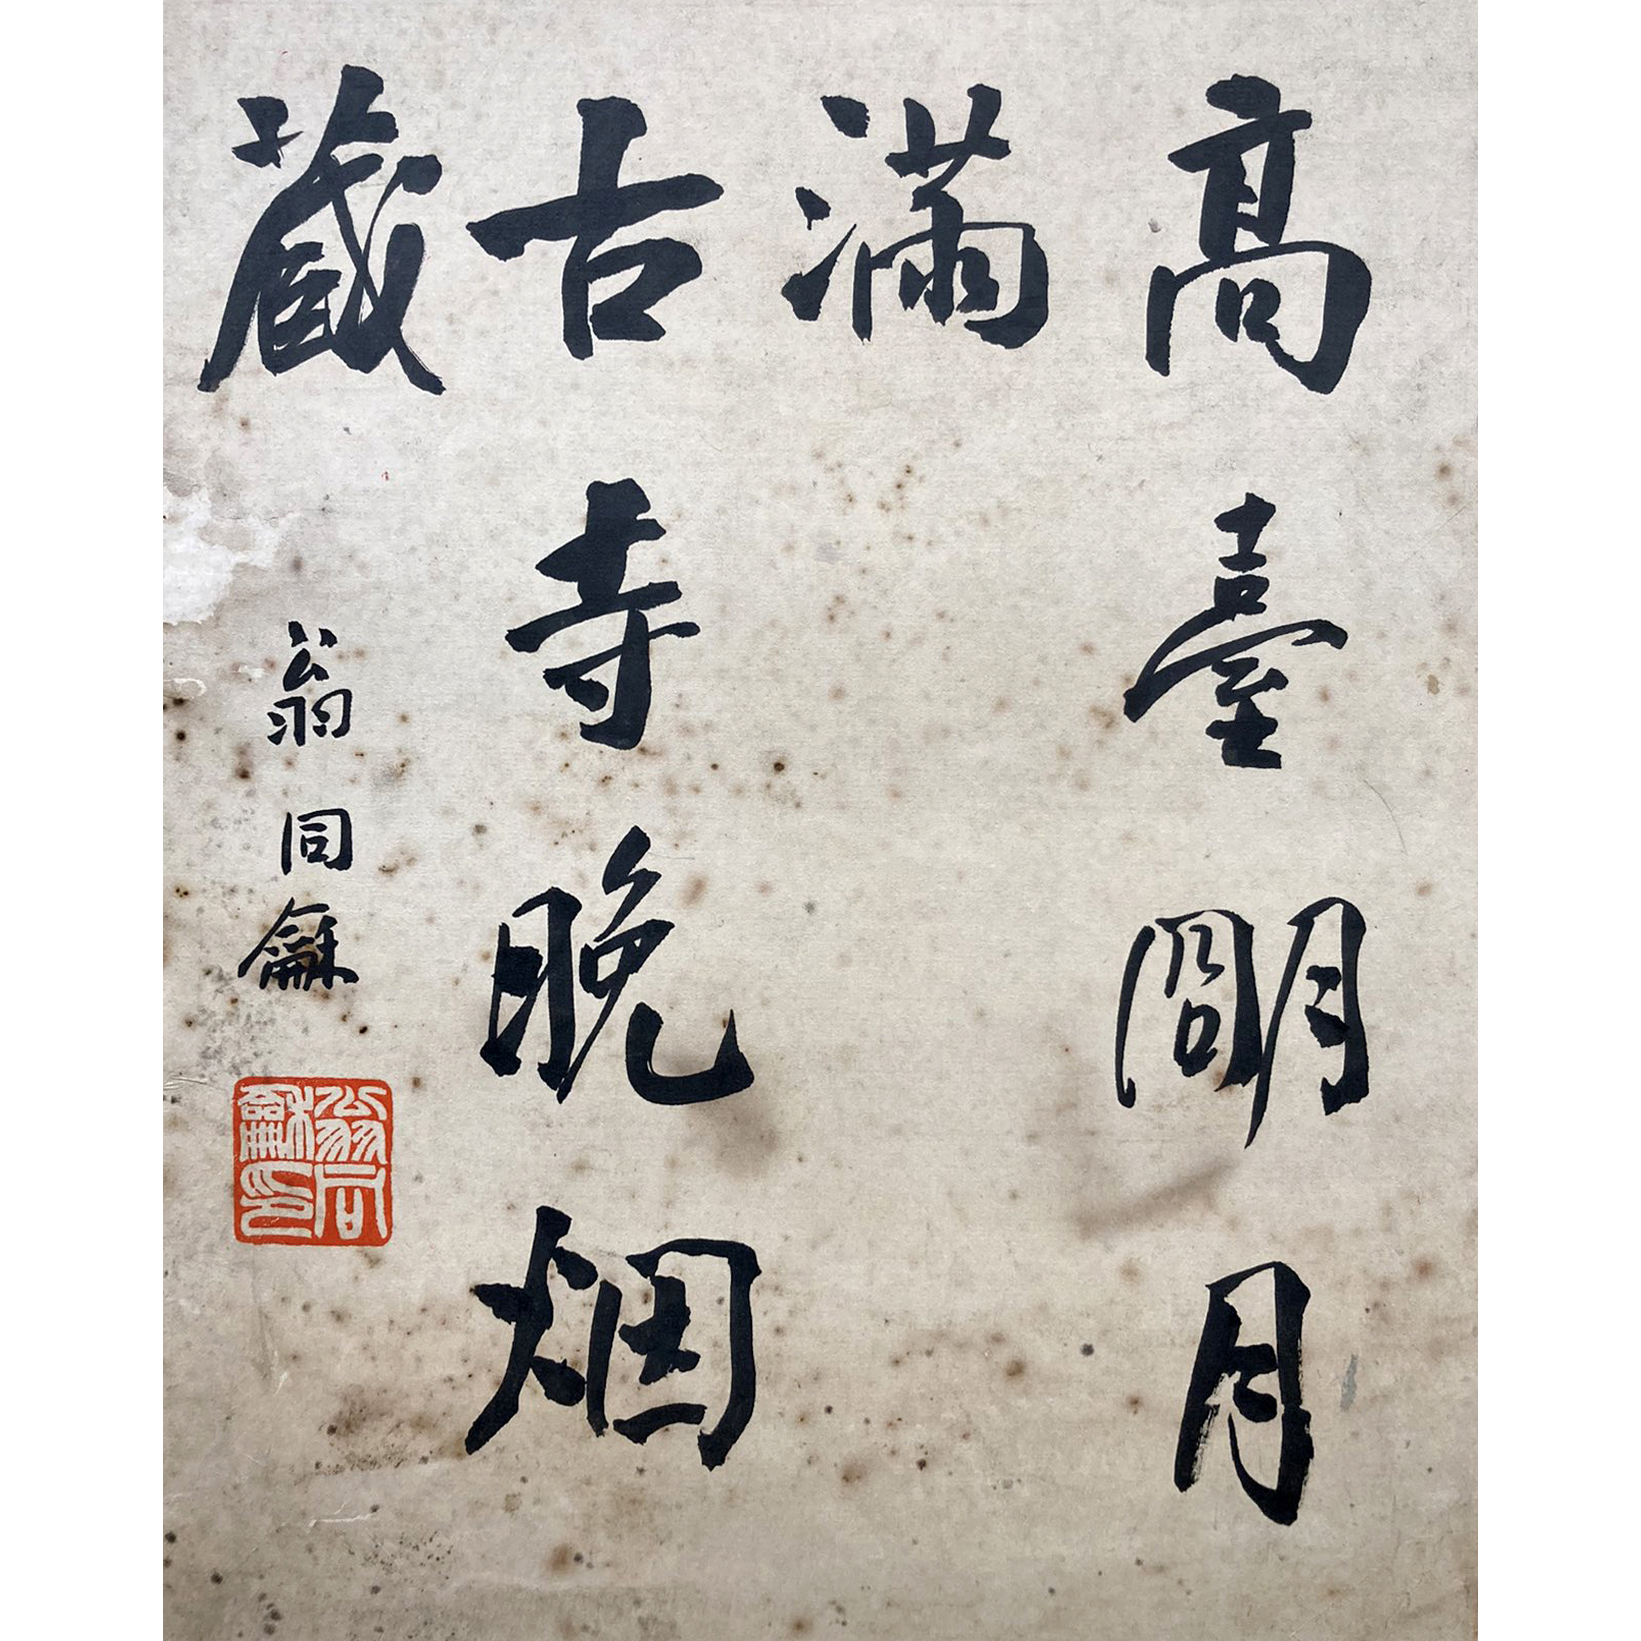 高臺閒月
滿
古寺晚烟
藏
翁同龢
翁同龢印